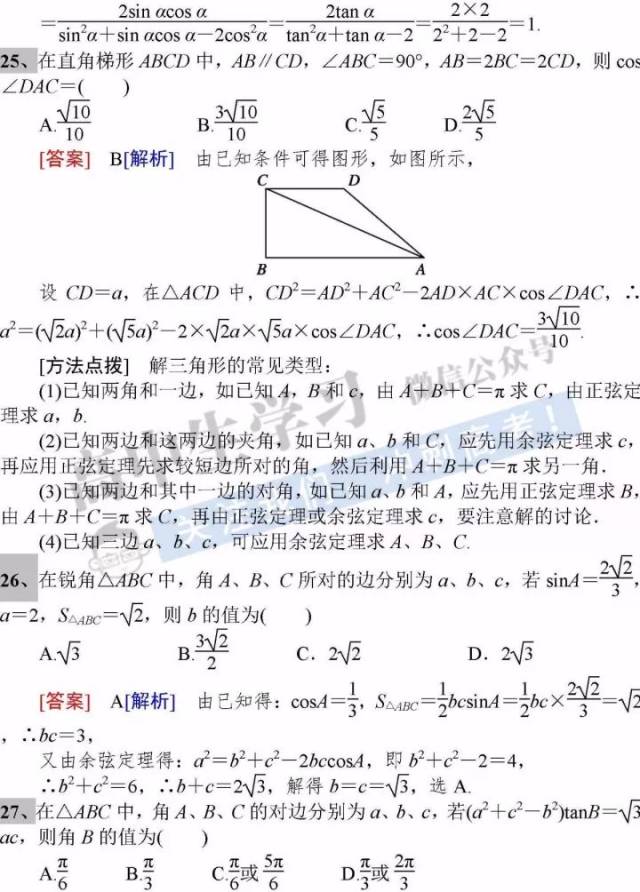 =2sin αcos α/(sin²α+sin αcos α−2cos²α)=2tan α/(tan²α+tan α−2)=2×2/(2²+2−2)=1.
25、在直角梯形 ABCD 中，AB∥CD，∠ABC=90°，AB=2BC=2CD，则 cos
∠DAC=(　　)
A.√10/10　B.3√10/10　C.√5/5　D.2√5/5
[答案]　B[解析]　由已知条件可得图形，如图所示，
C　D
B　A
设 CD=a，在△ACD 中，CD²=AD²+AC²−2AD×AC×cos∠DAC，∴
a²=(√2a)²+(√5a)²−2×√2a×√5a×cos∠DAC，∴cos∠DAC=3√10/10.
[方法点拨]　解三角形的常见类型：
(1)已知两角和一边，如已知 A，B 和 c，由 A+B+C=π 求 C，由正弦定
理求 a，b.
(2)已知两边和这两边的夹角，如已知 a、b 和 C，应先用余弦定理求 c，
再应用正弦定理先求较短边所对的角，然后利用 A+B+C=π 求另一角．
(3)已知两边和其中一边的对角，如已知 a、b 和 A，应先用正弦定理求 B，
由 A+B+C=π 求 C，再由正弦定理或余弦定理求 c，要注意解的讨论．
(4)已知三边 a、b、c，可应用余弦定理求 A、B、C.
26、在锐角△ABC 中，角 A、B、C 所对的边分别为 a、b、c，若 sinA=2√2/3，
a=2，S△ABC=√2，则 b 的值为(　　)
A.√3　B.3√2/2　C．2√2　D．2√3
[答案]　A[解析]　由已知得：cosA=1/3，S△ABC=1/2bcsinA=1/2bc×2√2/3=√2
，∴bc=3，
又由余弦定理得：a²=b²+c²−2bccosA，即 b²+c²−2=4，
∴b²+c²=6，∴b+c=2√3，解得 b=c=√3，选 A.
27、在△ABC 中，角 A、B、C 的对边分别为 a、b、c，若(a²+c²−b²)tanB=√3
ac，则角 B 的值为(　　)
A.π/6　B.π/3　C.π/6或5π/6　D.π/3或2π/3
高中生学习　微信公众号